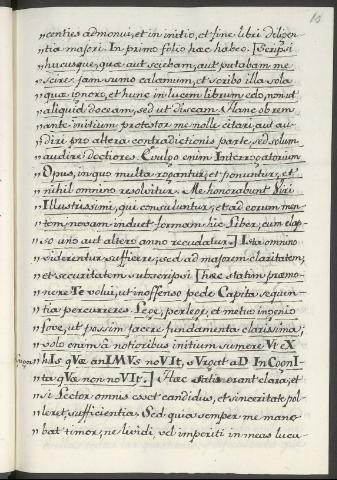 10
"centies admonui, et in initio, et fine libri diligen-
"tia majori. In primo folio hæc habeo. [Scripsi
"hucusque, quæ aut sciebam, aut putabam me
"scire: jam sumo calamum, et scribo illa sola
"quæ ignoro, et hunc in lucem librum edo, non ut
"aliquid doceam, sed ut discam. Hanc ob rem
"ante initium protestor me nolle citari, aut au-
"diri pro altera contradictionis parte, sed solum
"audire doctiores. Evulgo enim Interrogatorium
"Opus, in quo multa rogantur, et ponuntur, et
"nihil omnino resolvitur. Me honorabunt Viri
"Illustrissimi, qui consuluntur, et ad eorum men-
"tem, novam induet formam hic Liber, cum elap-
"so uno aut altero anno recudatur.] Ista omnino
"viderentur sufficere, sed ad majorem claritatem,
"et securitatem subscripsi [hæc statim præmo-
"nere Te volui, ut inoffenso pede Capita sequen-
"tia percurreres. Lege, perlege, et meto ingenio
"fove, ut possim jacere fundamenta clarissima;
"solo enim à notioribus initium sumere Vt EX
"hIs qVæ anIMVs noVIt, sVrgat aD InCognI-
"ta qVæ non noVIt.] Hæc satis erant clara, et
"si Lector omnis esset candidus, et sinceritate pol-
"leret, sufficientia. Sed quia semper me mane-
"bat timor, ne lividi, vel imperiti in meas lucu-